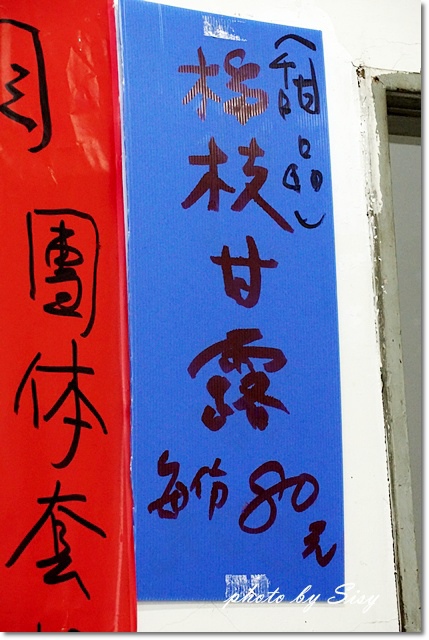 (甜品)
楊枝甘露
每份80元
團体套
photo by Sisy